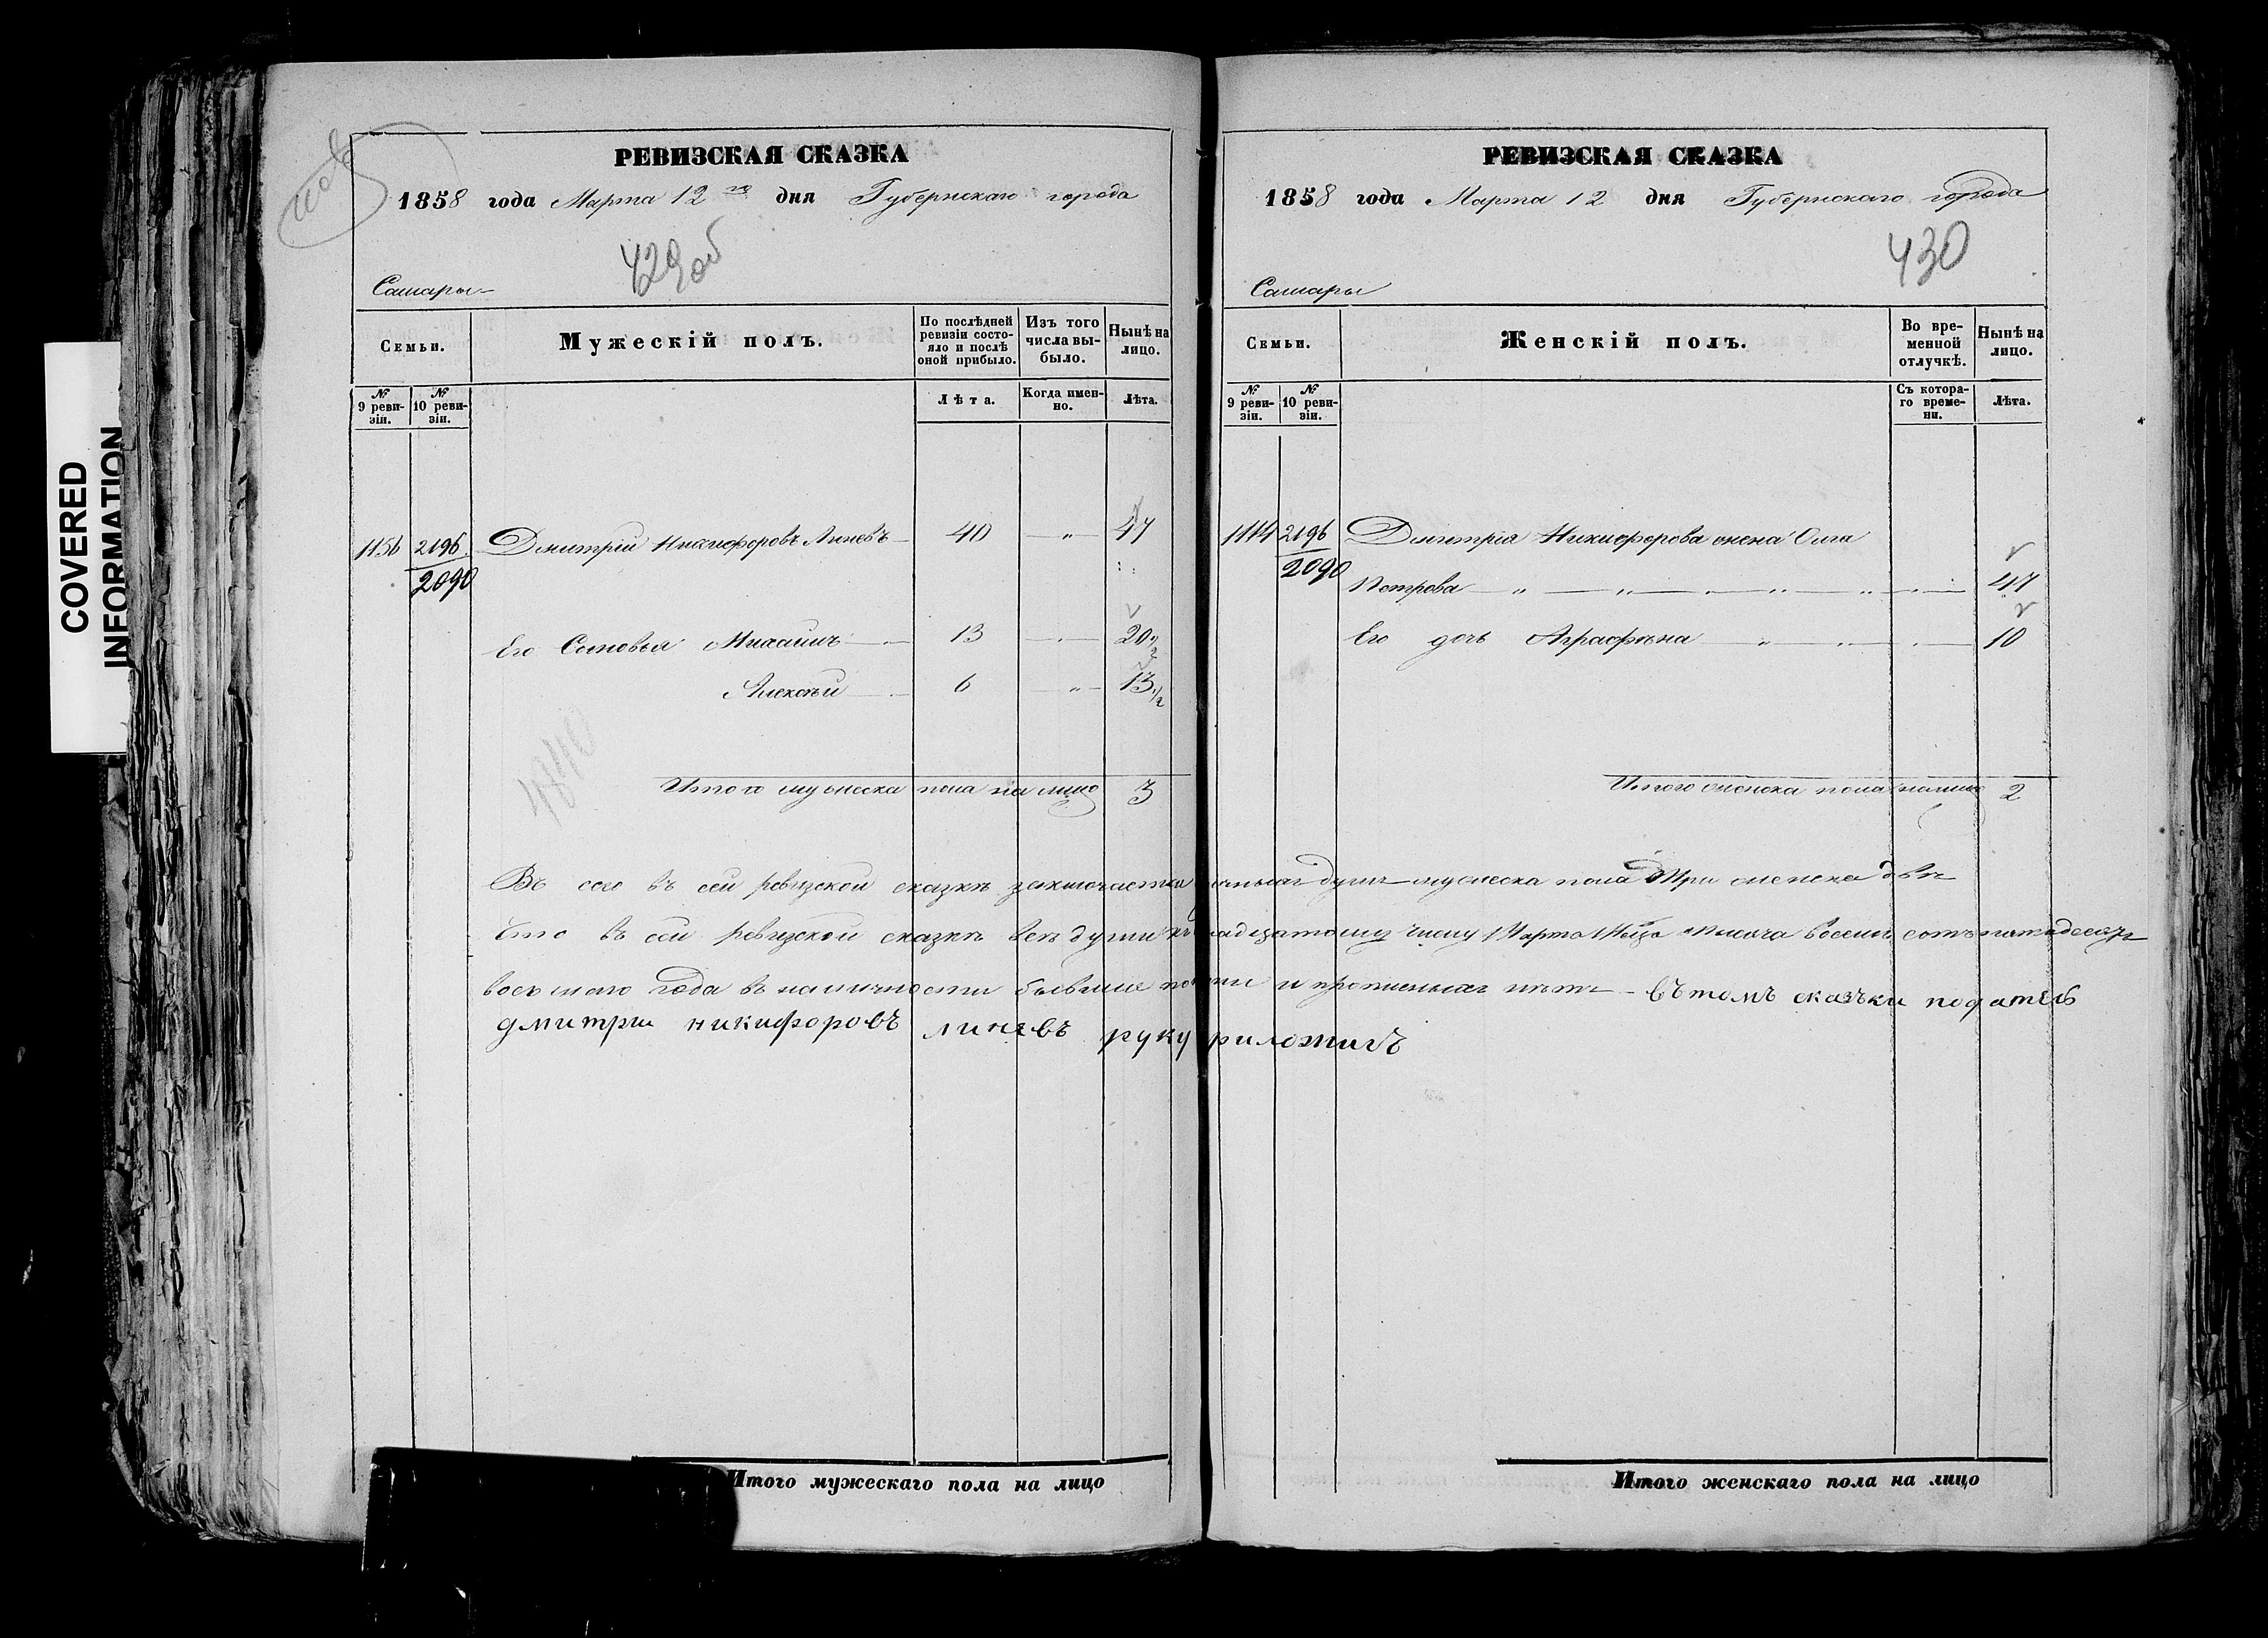 COVERED
INFORMATION
РЕВИЗСКАЯ СКАЗКА
1858 года Марта 12го дня Губернскаго города
429об
Самары
Семьи.
Мужескій полъ.
По послѣдней ревизіи состояло и послѣ оной прибыло.
Изъ того числа выбыло.
Нынѣ на лицо.
№ 9 ревизіи.
№ 10 ревизіи.
Лѣта.
Когда именно.
Лѣта.
1156 2196 Дмитрій Никифоровъ Линевъ 40 — " — 47
2090
Его Сыновья Михаилъ 13 — " — 20 1/2
Алексѣй 6 — " — 13 1/2
4840
Итого мужеска пола на лицо 3
РЕВИЗСКАЯ СКАЗКА
1858 года Марта 12 дня Губернскаго города
430
Самары
Семьи.
Женскій полъ.
Во временной отлучкѣ.
Нынѣ на лицо.
№ 9 ревизіи.
№ 10 ревизіи.
Съ котораго времени.
Лѣта.
1114 2196 Дмитрія Никифорова жена Олга
2090 Петрова — " — " — " — " — 47
Его дочь Аграфѣна — " — " — 10
Итого женска пола налицо 2
Въ сего въ сей ревизской сказкѣ заключается душъ мужеска пола три женска двѣ
Что въ сей ревизской сказкѣ всѣ души числу Марта тысяча восемь сотъ пятьдесятъ
восьмаго года въ наличности бывшие и прописныхъ нѣтъ — вътомъ сказъки податель
дмитрии никифоровъ линевъ руку риложилъ
Итого мужескаго пола на лицо
Итого женскаго пола на лицо